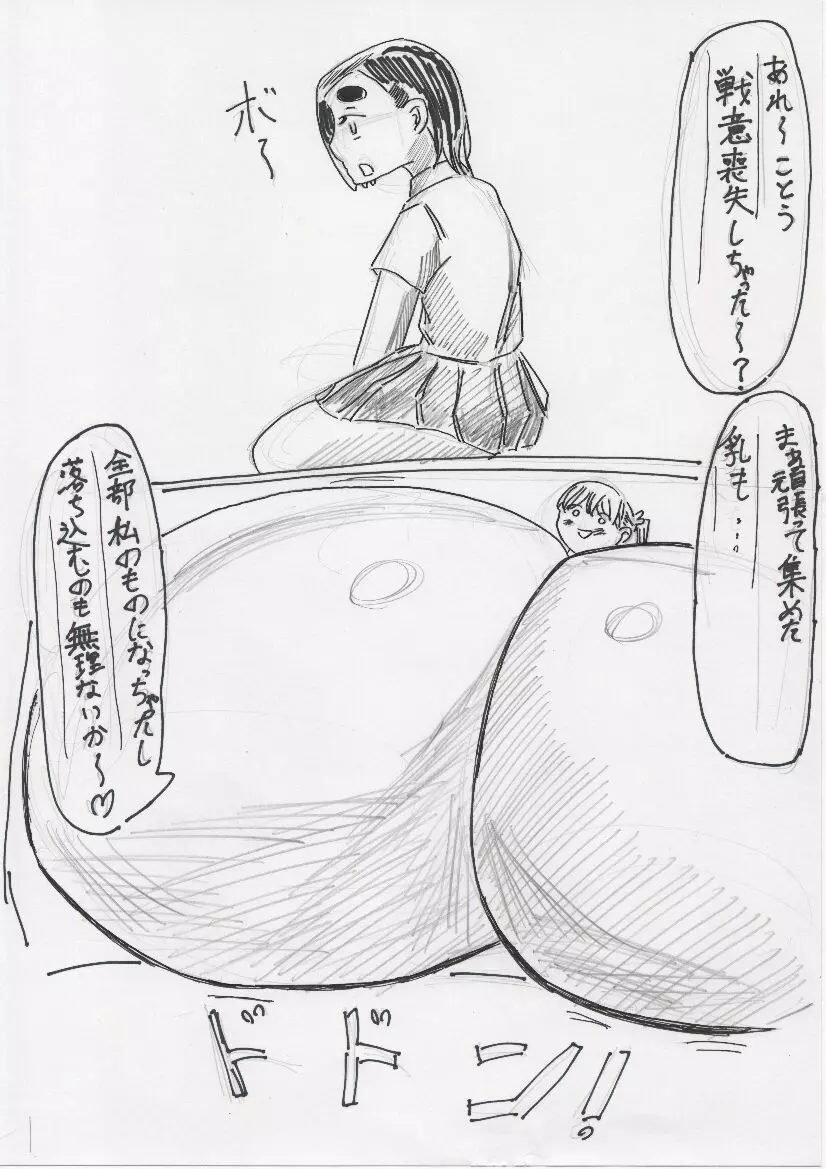 あれ～ことう
戦意喪失しちゃった～？
ボ～
まあ頑張って集めた
乳も....
全部私のものになっちゃたし
落ち込むのも無理ないか～♡
ドドン!!